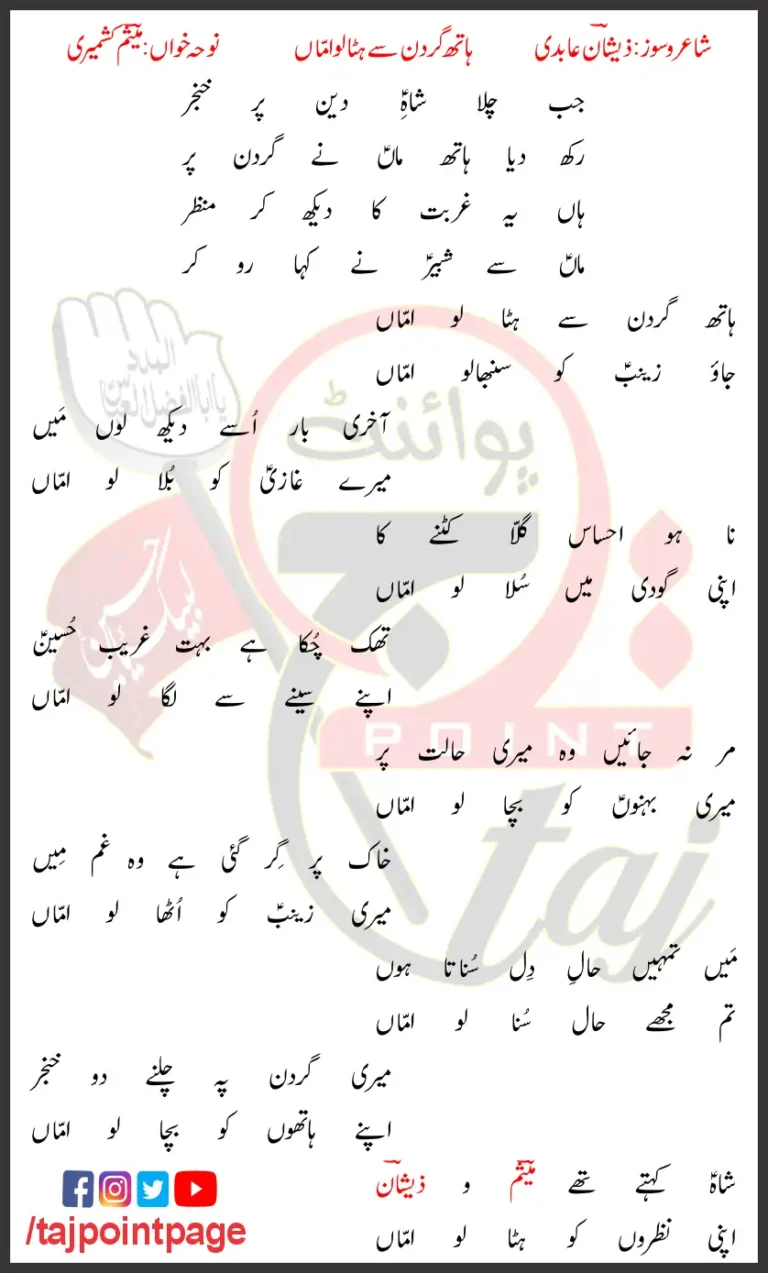 شاعر و سوز: ذیشانؔ عابدی ہاتھ گردن سے ہٹا لو امّاں نوحہ خواں: میثمؔ کشمیری
جب چلا شاہِؑ دین پر خنجر
رکھ دیا ہاتھ ماںؑ نے گردن پر
ہاں یہ غربت کا دیکھ کر منظر
ماںؑ سے شبیرؑ نے کہا رو کر
ہاتھ گردن سے ہٹا لو امّاں
جاؤ زینبؑ کو سنبھالو امّاں
آخری بار اُسے دیکھ لوں مَیں
میرے غازیؑ کو بُلا لو امّاں
نا ہو احساس گلّا کٹنے کا
اپنی گودی میں سُلا لو امّاں
تھک چُکا ہے بہت غریب حُسینؑ
اپنے سینے سے لگا لو امّاں
مر نہ جائیں وہ میری حالت پر
میری بہنوںؑ کو بچا لو امّاں
خاک پر گِر گئی ہے وہ غم مِیں
میری زینبؑ کو اُٹھا لو امّاں
مَیں تمہیں حالِ دِل سُناتا ہوں
تم مجھے حال سُنا لو امّاں
میری گردن پہ چلنے دو خنجر
اپنے ہاتھوں کو بچا لو امّاں
شاہؑ کہتے تھے میثمؔ و ذیشانؔ
اپنی نظروں کو ہٹا لو امّاں
/tajpointpage
پوائنٹ
تاج
POINT
taj
لبیک یا حسین